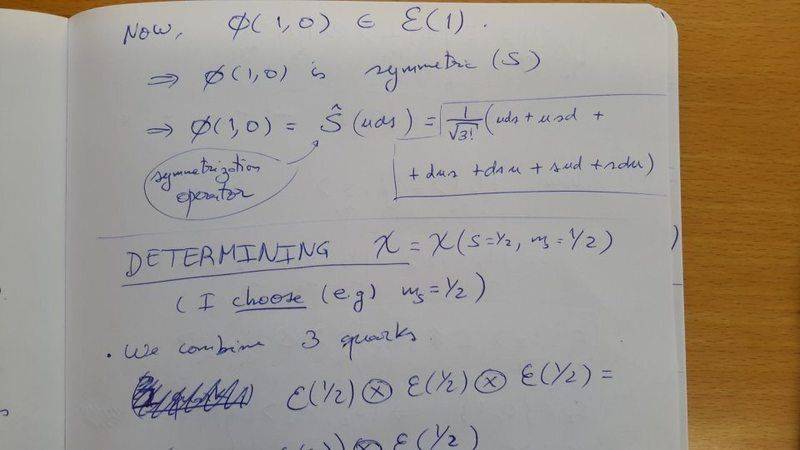 Now, ϕ(1,0) ∈ ℰ(1).
⇒ ϕ(1,0) is symmetric (S)
⇒ ϕ(1,0) = Ŝ(uds) = 1/√3! (uds + usd +
+ dus + dsu + sud + sdu)
symmetrization
operator
DETERMINING χ = χ(S=1/2, ms = 1/2)
(I choose (e.g) ms = 1/2)
• We combine 3 quarks
ℰ(1/2) ⊗ ℰ(1/2) ⊗ ℰ(1/2) =
⊗ ℰ(1/2)